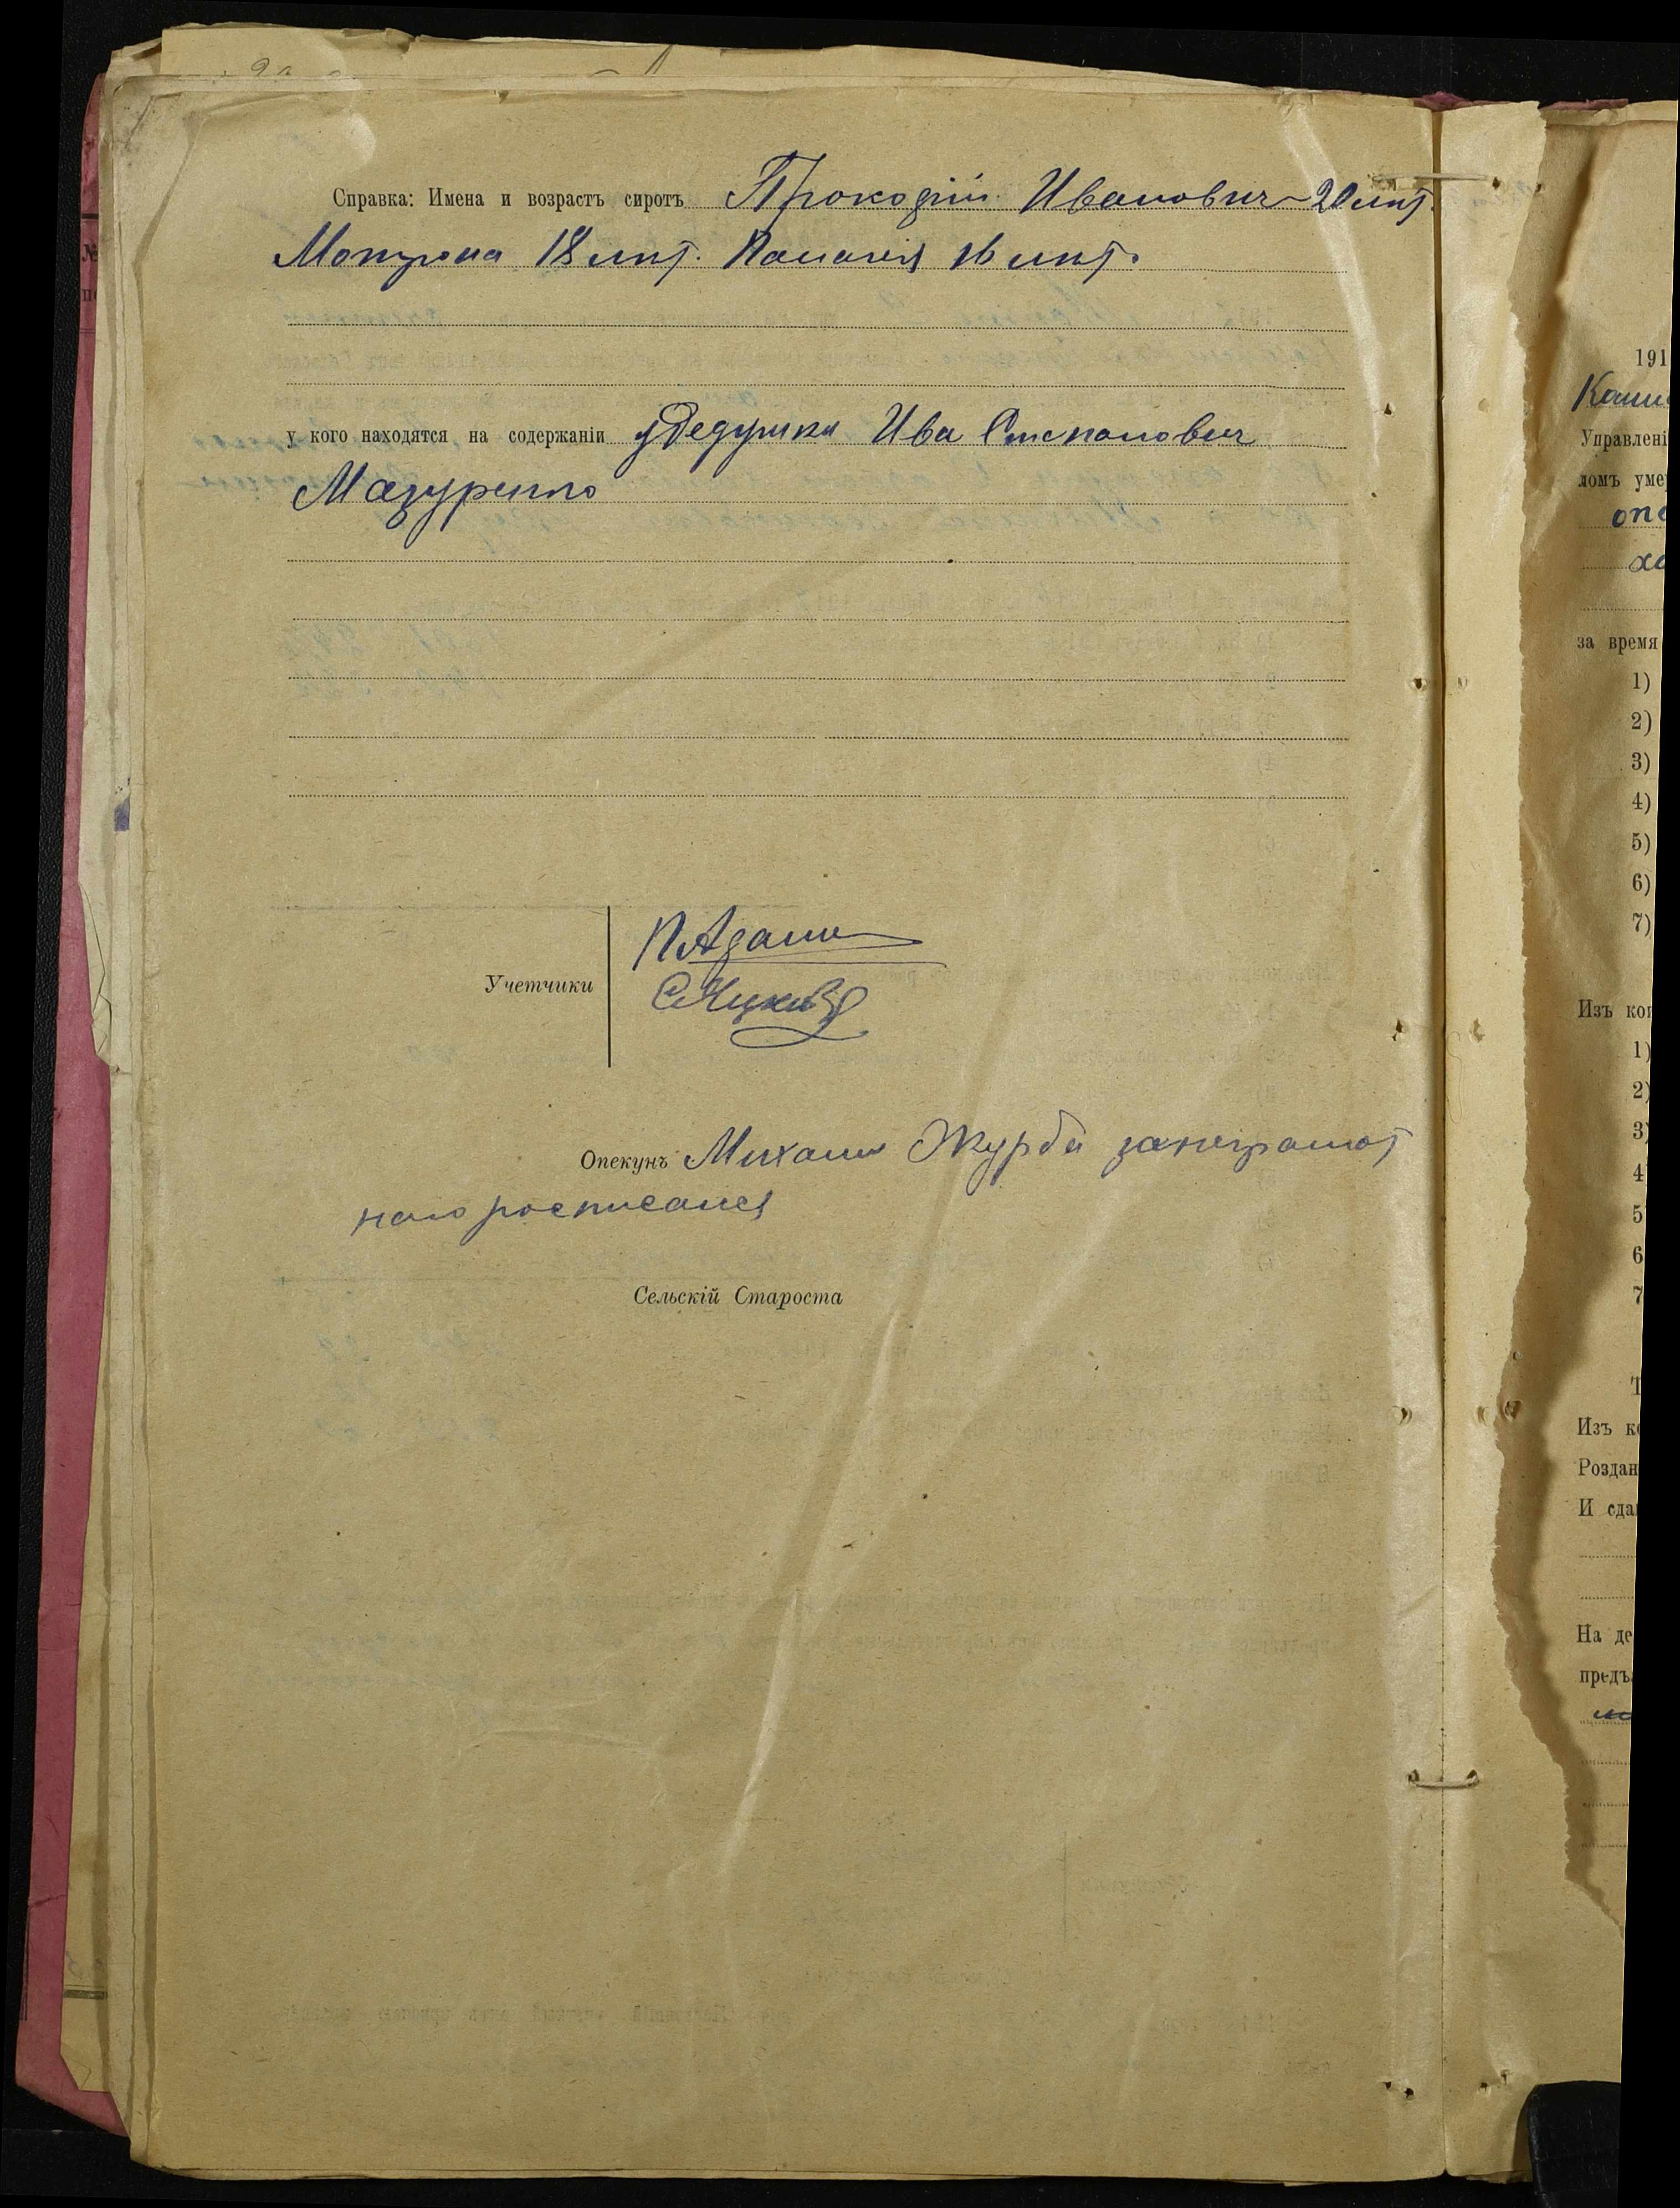 Справка: Имена и возрастъ сиротъ Прокофій Ивановичъ 20 лѣт.
Мотрона 18 лѣт. Паланія 16 лѣт.
у кого находятся на содержаніи у Дедушки Ива Степанович
Мазуренко
Учетчики
Опекунъ Михаил Журба за неграмот
наго росписался
Сельскій Староста
191
Управлені
ломъ уме
опе
за время
1)
2)
3)
4)
5)
6)
7)
Изъ ко
1)
2)
3)
4
5
6
7
Изъ к
Роздан
И сда
На де
предъ